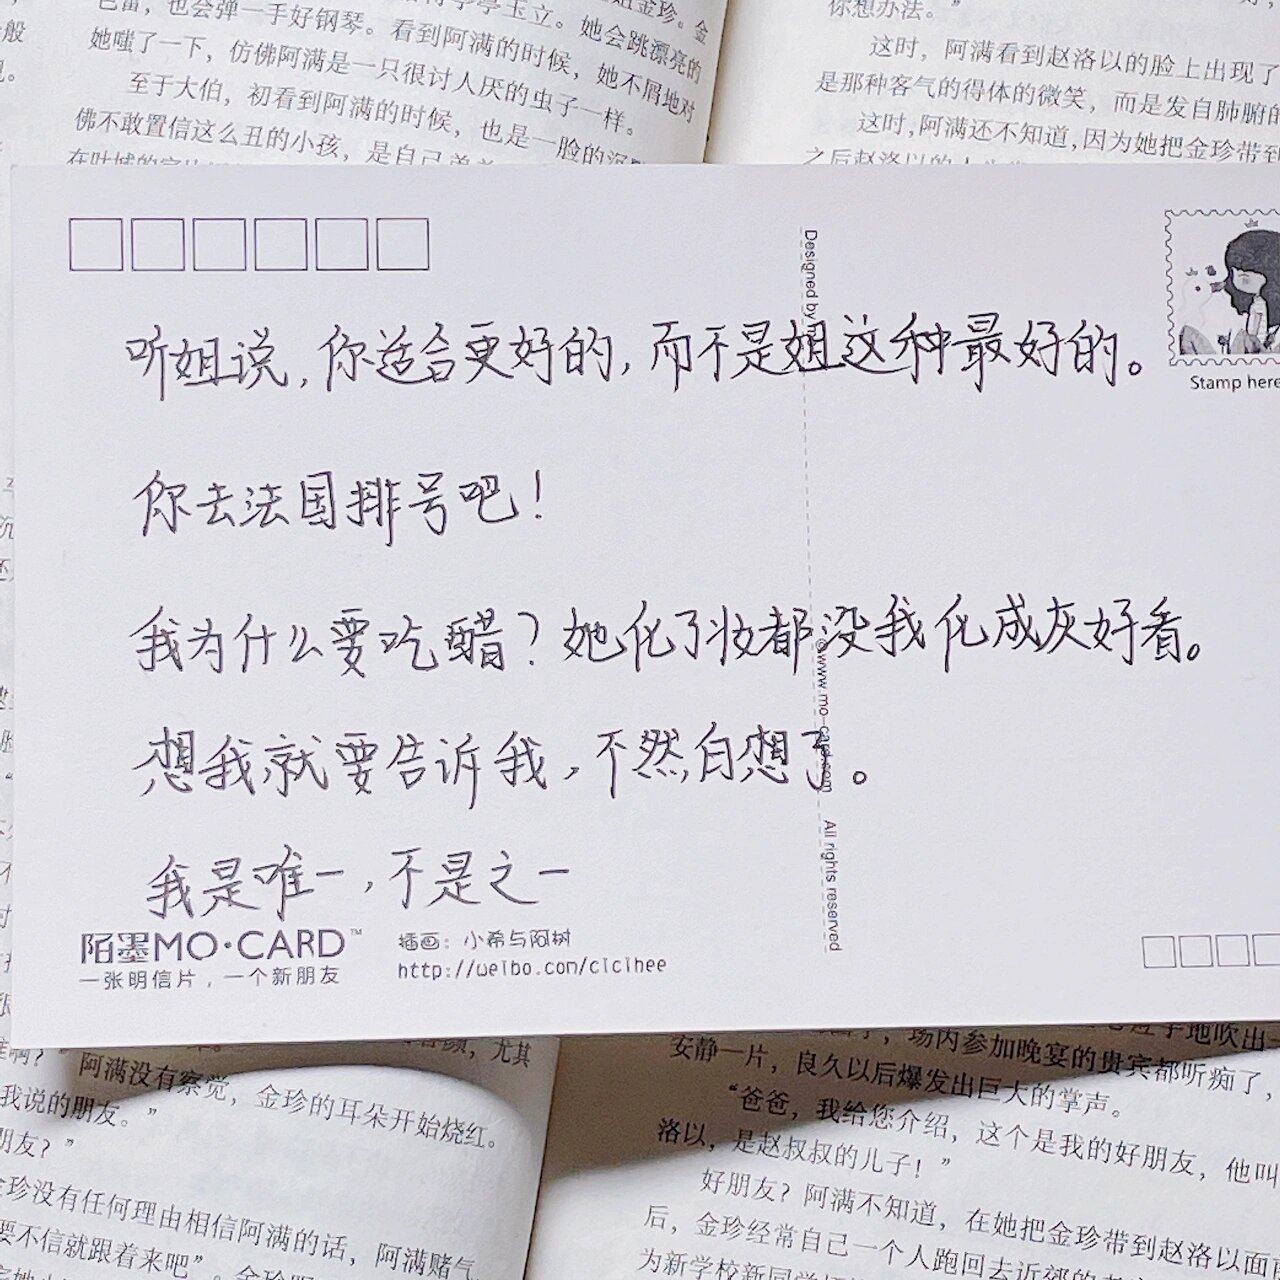 她嗤了一下，仿佛阿满是一只很讨人厌的虫子一样。
也会弹一手好钢琴。看到阿满的时候，她不屑地对
至于大伯，初看到阿满的时候，也是一脸的沉
佛不敢置信这么丑的小孩，是自己
你想办法。”
这时，阿满看到赵洛以的脸上出现了
是那种客气的得体的微笑，而是发自肺腑的
这时，阿满还不知道，因为她把金珍带到
之后赵洛以的人
Designed by
Stamp here
听姐说，你适合更好的，而不是姐这种最好的。
你去法国排号吧！
我为什么要吃醋？她化了妆都没我化成灰好看。
想我就要告诉我，不然白想了。
我是唯一，不是之一
www.mo-card.com
All rights reserved
陌墨MO·CARD™
一张明信片，一个新朋友
插画：小希与阿树
http://weibo.com/cicihee
尤其
啊？” 阿满没有察觉，金珍的耳朵开始烧红。
我说的朋友。”
朋友？”
金珍没有任何理由相信阿满的话，阿满赌气
要不信就跟着来吧”。
地吹出一
场内参加晚宴的贵宾都听痴了，
安静一片，良久以后爆发出巨大的掌声。
“爸爸，我给您介绍，这个是我的好朋友，他叫
洛以，是赵叔叔的儿子！”
好朋友？阿满不知道，在她把金珍带到赵洛以面
后，金珍经常自己一个人跑回去近郊的
为新学校新同学